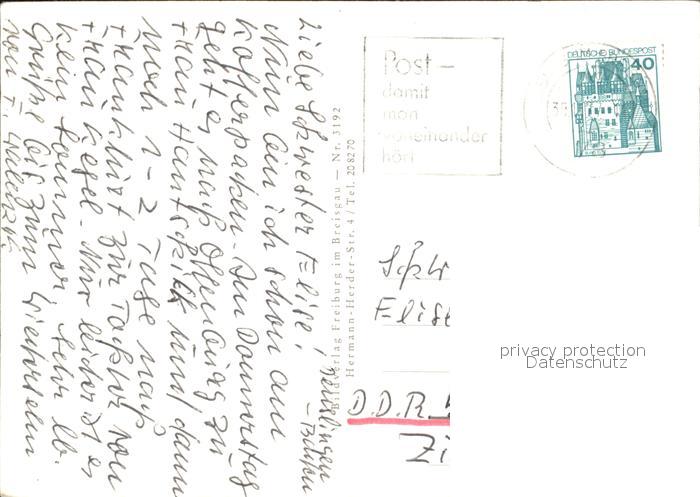 Liebe Schwester Elise!
Nun bin ich schon am
Kofferpacken. Am Donnerstag
geht es nach Offenburg zu
Frau Hautschild und dann
noch 1-2 Tage nach
Frankfurt zur Tochter von
Frau Kegel. Nur leider ist es
kein Sommer. Sehr lb.
Grüße bis zum Wiedersehn
von F.
Bildverlag Freiburg im Breisgau — Nr. 3192
Hermann-Herder-Str. 4 / Tel. 208270
Post-
damit
man
voneinander
hört
DEUTSCHE BUNDESPOST
40
Schw
Elise
D.D.R.
Zi
privacy protection
Datenschutz